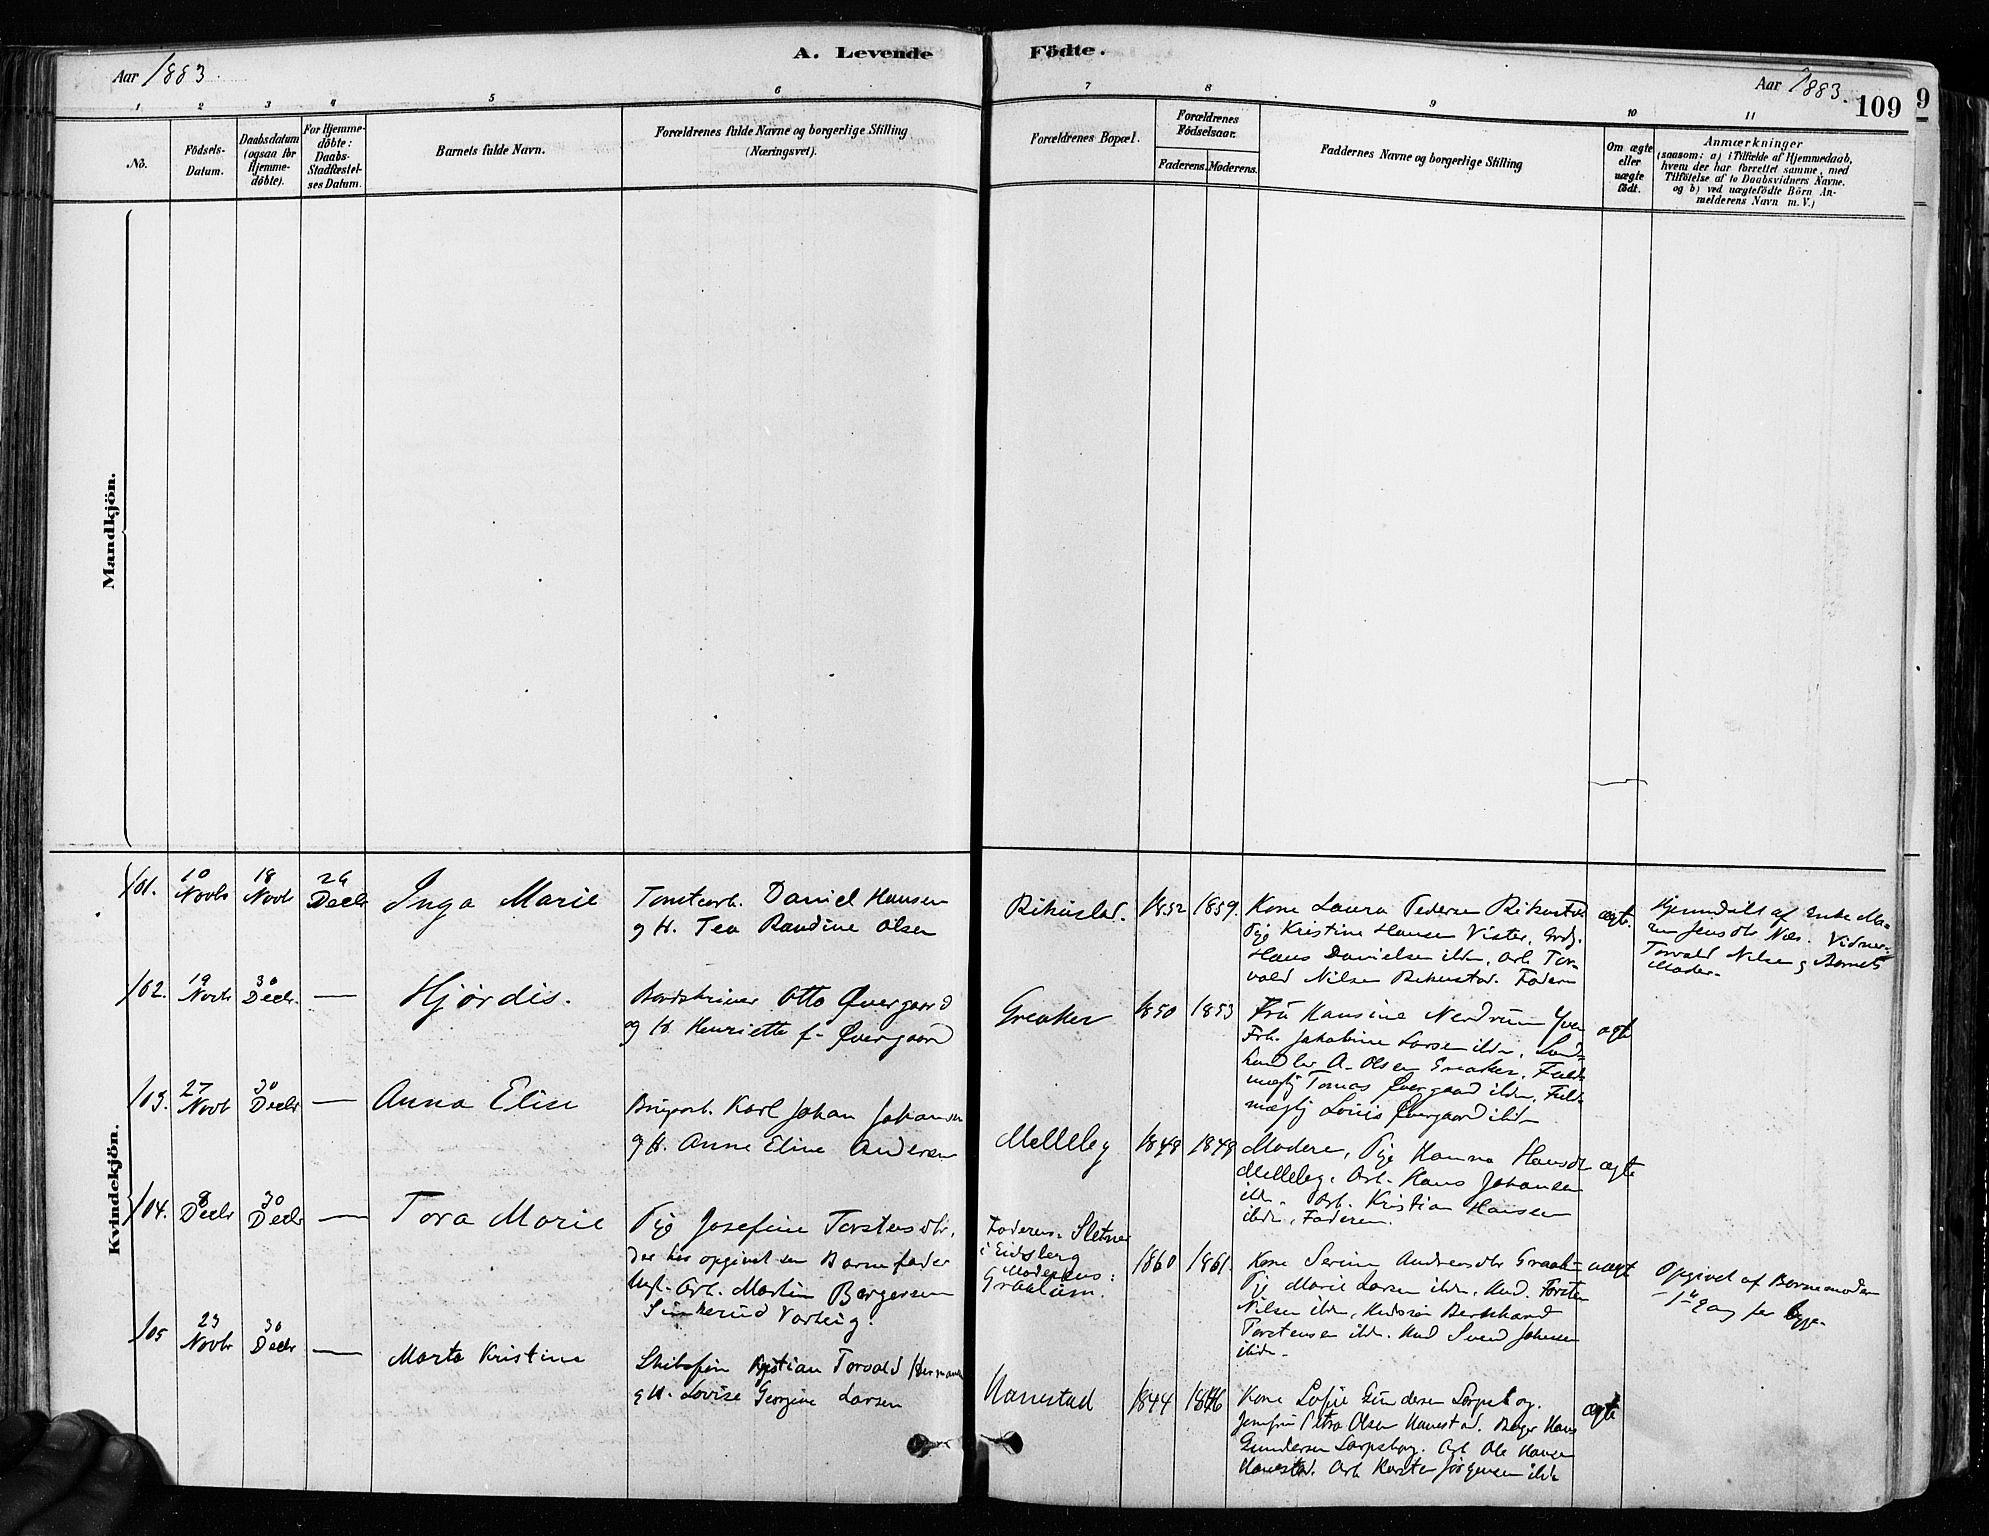 A. Levende Födte.
Aar 1883.
Aar 1883.
109
9
1 2 3 4 5 6 7 8 9 10 11
No.
Födsels-Datum.
Daabsdatum (ogsaa for Hjemme-döbte).
For Hjemme-döbte: Daabs-Stadfæstel-ses Datum.
Barnets fulde Navn.
Forældrenes fulde Navne og borgerlige Stilling (Næringsvei).
Forældrenes Bopæl.
Forældrenes Födselsaar.
Faderens. Moderens.
Faddernes Navne og borgerlige Stilling
Om ægte eller uægte födt.
Anmærkninger
(saasom: a) i Tilfælde af Hjemmedaab,
hvem der har forrettet samme, med
Tilföielse af to Daabsvidners Navne.
og b) ved uægtefödte Börn An-
melderens Navn m. V.)
Mandkjön.
Kvindekjön.
101. 10 Novbr 18 Novbr 26 Decbr Inga Marie
Tomtearb. Daniel Hansen
og H. Tea Randine Olsen
1852 1859.
Kone Laura Pedersen
Pige Kristine Hansen Vister,
Hans Danielsen ibdn, Arb. Tor-
vald Nilsen Faderen
ægte.
Hjemdøbt af Enke Ma-
ren Jensdtr Næs. Vidner:
Torvald Nilsen og Barnets
Moder.
102. 19 Novbr 30 Decbr. — Hjørdis.
Bordskriver Otto Øvergaard
og H. Henriette f. Øvergaard
Greaker 1850 1853
Fru Hansine Nerdrum Yven
Frk. Jakobine Larsen ibdn, Land-
handler A. Olsen Greaker, Fuld-
mægtig Tomas Øvergaard ibdn, Fuld-
mægtig Louis Øvergaard ibdn
ægte
103. 27 Novb 30 Decbr — Anna Elise
Brugarb. Karl Johan Johansen
og H. Anne Eline Andersen
Melleby 1848 1849
Moderen, Pige Hanna Hansdtr
Melleby, Arb. Hans Johansen
ibdn. Arb. Kristian Hansen
ibdn, Faderen.
ægte
104. 8 Decbr 30 Decbr — Tora Marie
Pige Josefine Torstensdtr,
der har opgivet som Barnefader
Ungk. Arb. Martin Borgersen
Varteig.
Faderens: Sletner
i Eidsberg
Moderens:
Graalum.
1860 1861.
Kone Serine Andreasdtr Graalum
Pige Marie Larsen ibdn, Und. Torsten
Nilsen ibdn, Bernhard
Torstensen ibdn. Und Svend Johnsen
ibidn.
uægte
Opgivet af Barnemoder
1ste Gang for begge.
105 23 Novbr 30 Decbr — Marta Kristine
Kristian Torvald Hermansen
og H. Lovise Georgine Larsen
Hanestad 1844 1846
Kone Sofie Gundersen Sarpsborg.
Jomfru Petra Olsen Hanestad. Bager Hans
Gundersen Sarpsborg. Arb Ole Hansen
Hanestad. Arb Karsten Jørgensen ibdn
ægte